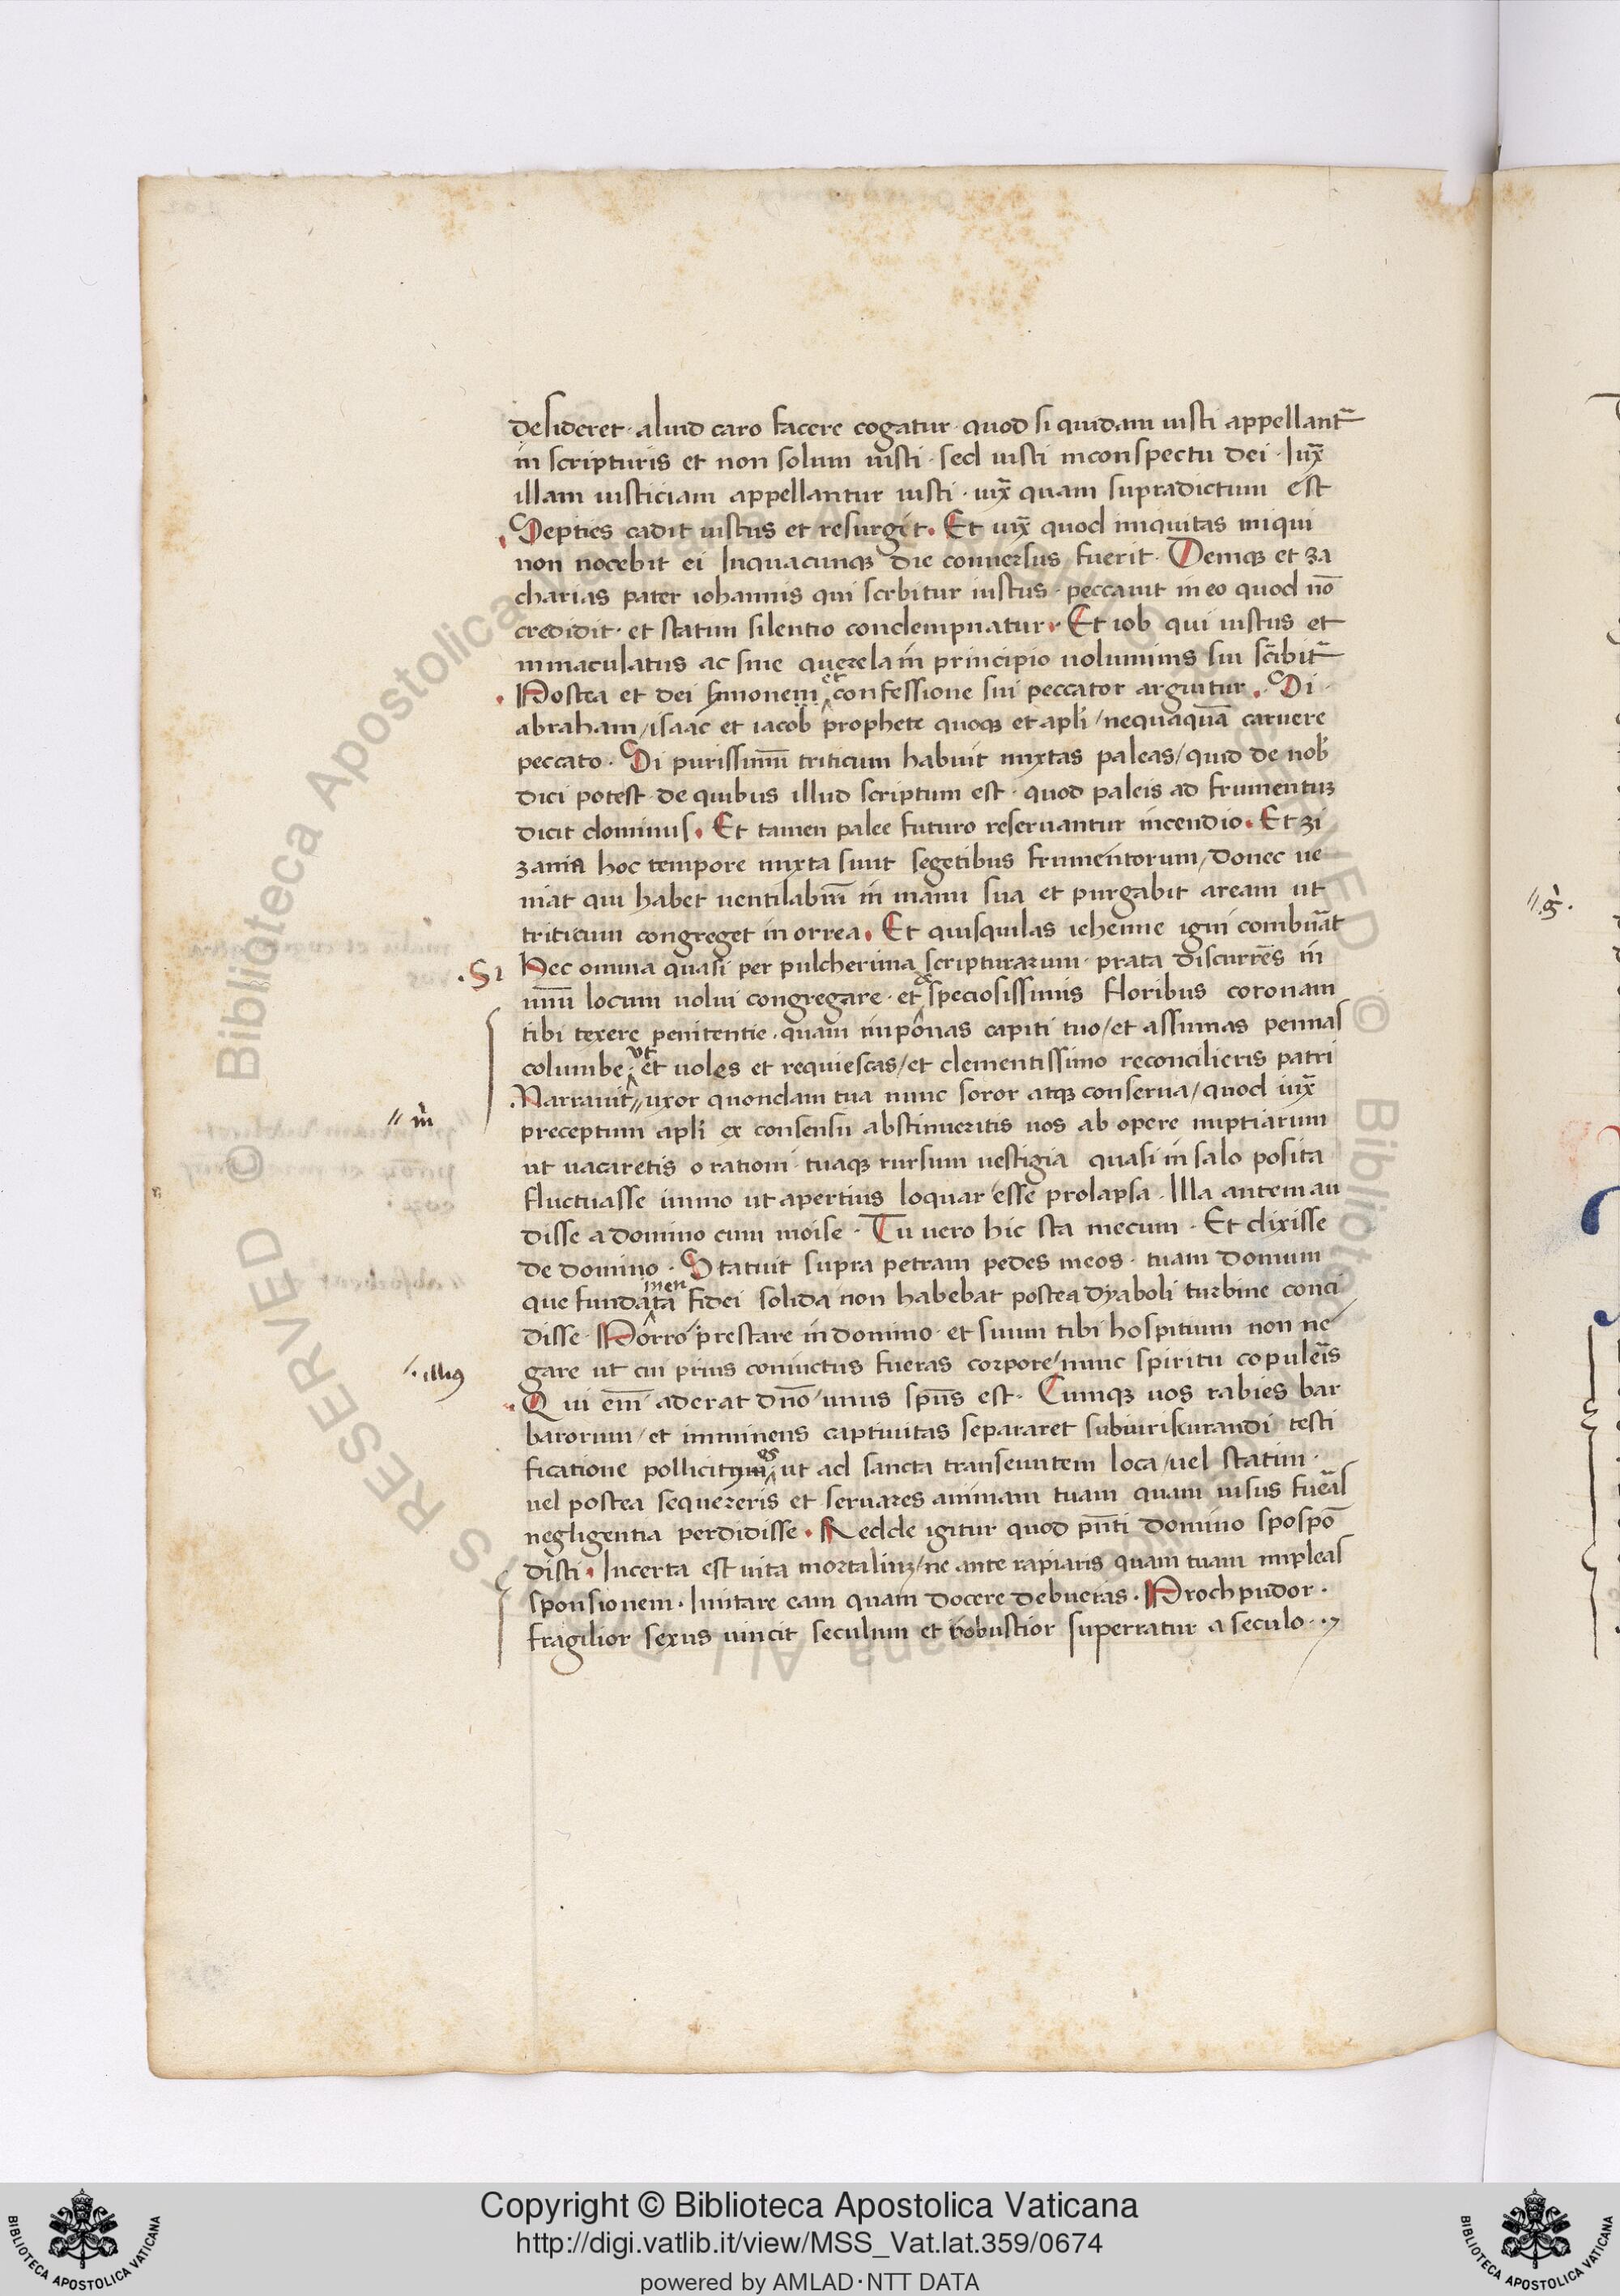 desideret · aliud caro facere cogatur · quod si quidam iusti appellant᷑
in scripturis et non solum iusti · sed iusti inconspectu dei · Iux̄
illam iusticiam appellantur iusti · iux̄ quam supradictum est
Septies cadit iustus et resurget. Et iux̄ quod iniquitas iniqui
non nocebit ei Inquacunqꝫ die conuersus fuerit · Deniqꝫ et za
charias pater iohannis qui scrbitur iustus · peccauit in eo quod nō
credidit · et statim silentio condempnatur. Et iob qui iustus et
inmaculatus ac sine querela in principio uoluminis sui sc̄ibit᷑
Postea et dei s̄monem et confessione sui peccator arguitur. Si
abraham / isaac et iacob prophete quoqꝫ et apl̄i / nequaquā caruere
peccato · Si purissimū triticum habuit mixtas paleas / quid de nob̄
dici potest · de quibus illud scriptum est · quod paleis ad frumentuꝫ
dicit dominus. Et tamen palee futuro reseruantur incendio. Et zi
zania hoc tempore mixta sunt segetibus frumentorum / donec ue
niat qui habet uentilabrū in manu sua et purgabit aream ut
triticum congreget in orrea. Et quisquilas iehenne igni combur̄at
.Sı Hec omnia quasi per pulcherima scripturarum · prata discurrēs in
unū locum uolui congregare · et speciosissimis floribus coronam
tibi texere penitentie · quam imponas capiti tuo / et assumas pennas
columbe · vt et uoles et requiescas / et clementissimo reconcilieris patri
// m̀ Narrauit // uxor quondam tua nunc soror atqꝫ conserua / quod iux̄
preceptum apl̄i ex consensu abstinueritis uos ab opere nuptiarum
ut uacaretis orationi · tuaqꝫ rursum uestigia quasi in salo posita
fluctuasse immo ut apertius loquar esse prolapsa · Illa autem au
disse a domino cum moise · Tu uero hic sta mecum · Et dixisse
de domino · Statuit supra petram pedes meos · tuam domum
que fundamenta fidei solida non habebat postea dyaboli turbine conci
disse · Porro prestare in domino · et suum tibi hospitium non ne
/· illiꝰ gare ut cui prius coniuctus fueras corpore / nunc spiritu copulēis
Qui em̄ aderat dn̄o / unus sp̄us est · Cumqꝫ uos rabies bar
barorum / et imminens captiuitas separaret sub iuriscurandi testi
ficatione pollicitum es ut ad sancta transeuntem loca / uel statim ·
uel postea sequereris et seruares animam tuam quam uisus fuēas
negligentia perdidisse. Redde igitur quod pn̄ti domino spospō
disti. Incerta est uita mortaliuꝫ / ne ante rapiaris quam tuam impleas
sponsionem · Imitare eam quam docere debueras · Proch pudor ·
fragilior sexus uincit seculum et robustior superratur a seculo ··
// .g̀.
Copyright © Biblioteca Apostolica Vaticana
http://digi.vatlib.it/view/MSS_Vat.lat.359/0674
powered by AMLAD·NTT DATA
BIBLIOTECA APOSTOLICA VATICANA
BIBLIOTECA APOSTOLICA VATICANA